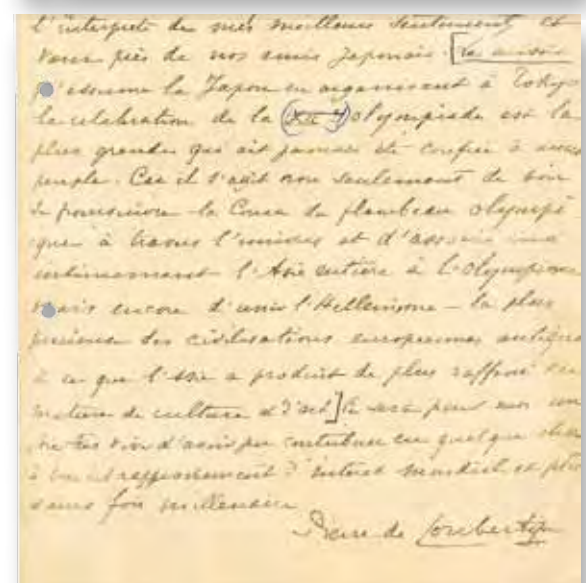 l'interprète de mes meilleurs sentiments et
vœux près de nos amis japonais. [La mission
qu'assume le Japon en organisant à Tokyo
la célébration de la (XII e) olympiade est la
plus grande qui ait jamais été confiée à aucun
peuple. Car il s'agit non seulement de
de poursuivre la Course du flambeau olympi
que à travers l'univers et d'associer
intimement l'Asie entière à l'olympisme
mais encore d'unir l'Hellénisme – la plus
précieuse des civilisations européennes antiques
à ce que l'Asie a produit de plus raffiné en
matière de culture et d'art] Ce sera pour moi une
joie très vive d'avoir pu contribuer en quelque chose
à rapprochement d'intérêt mondial et plu
sieurs fois millénaire
Pierre de Coubertin